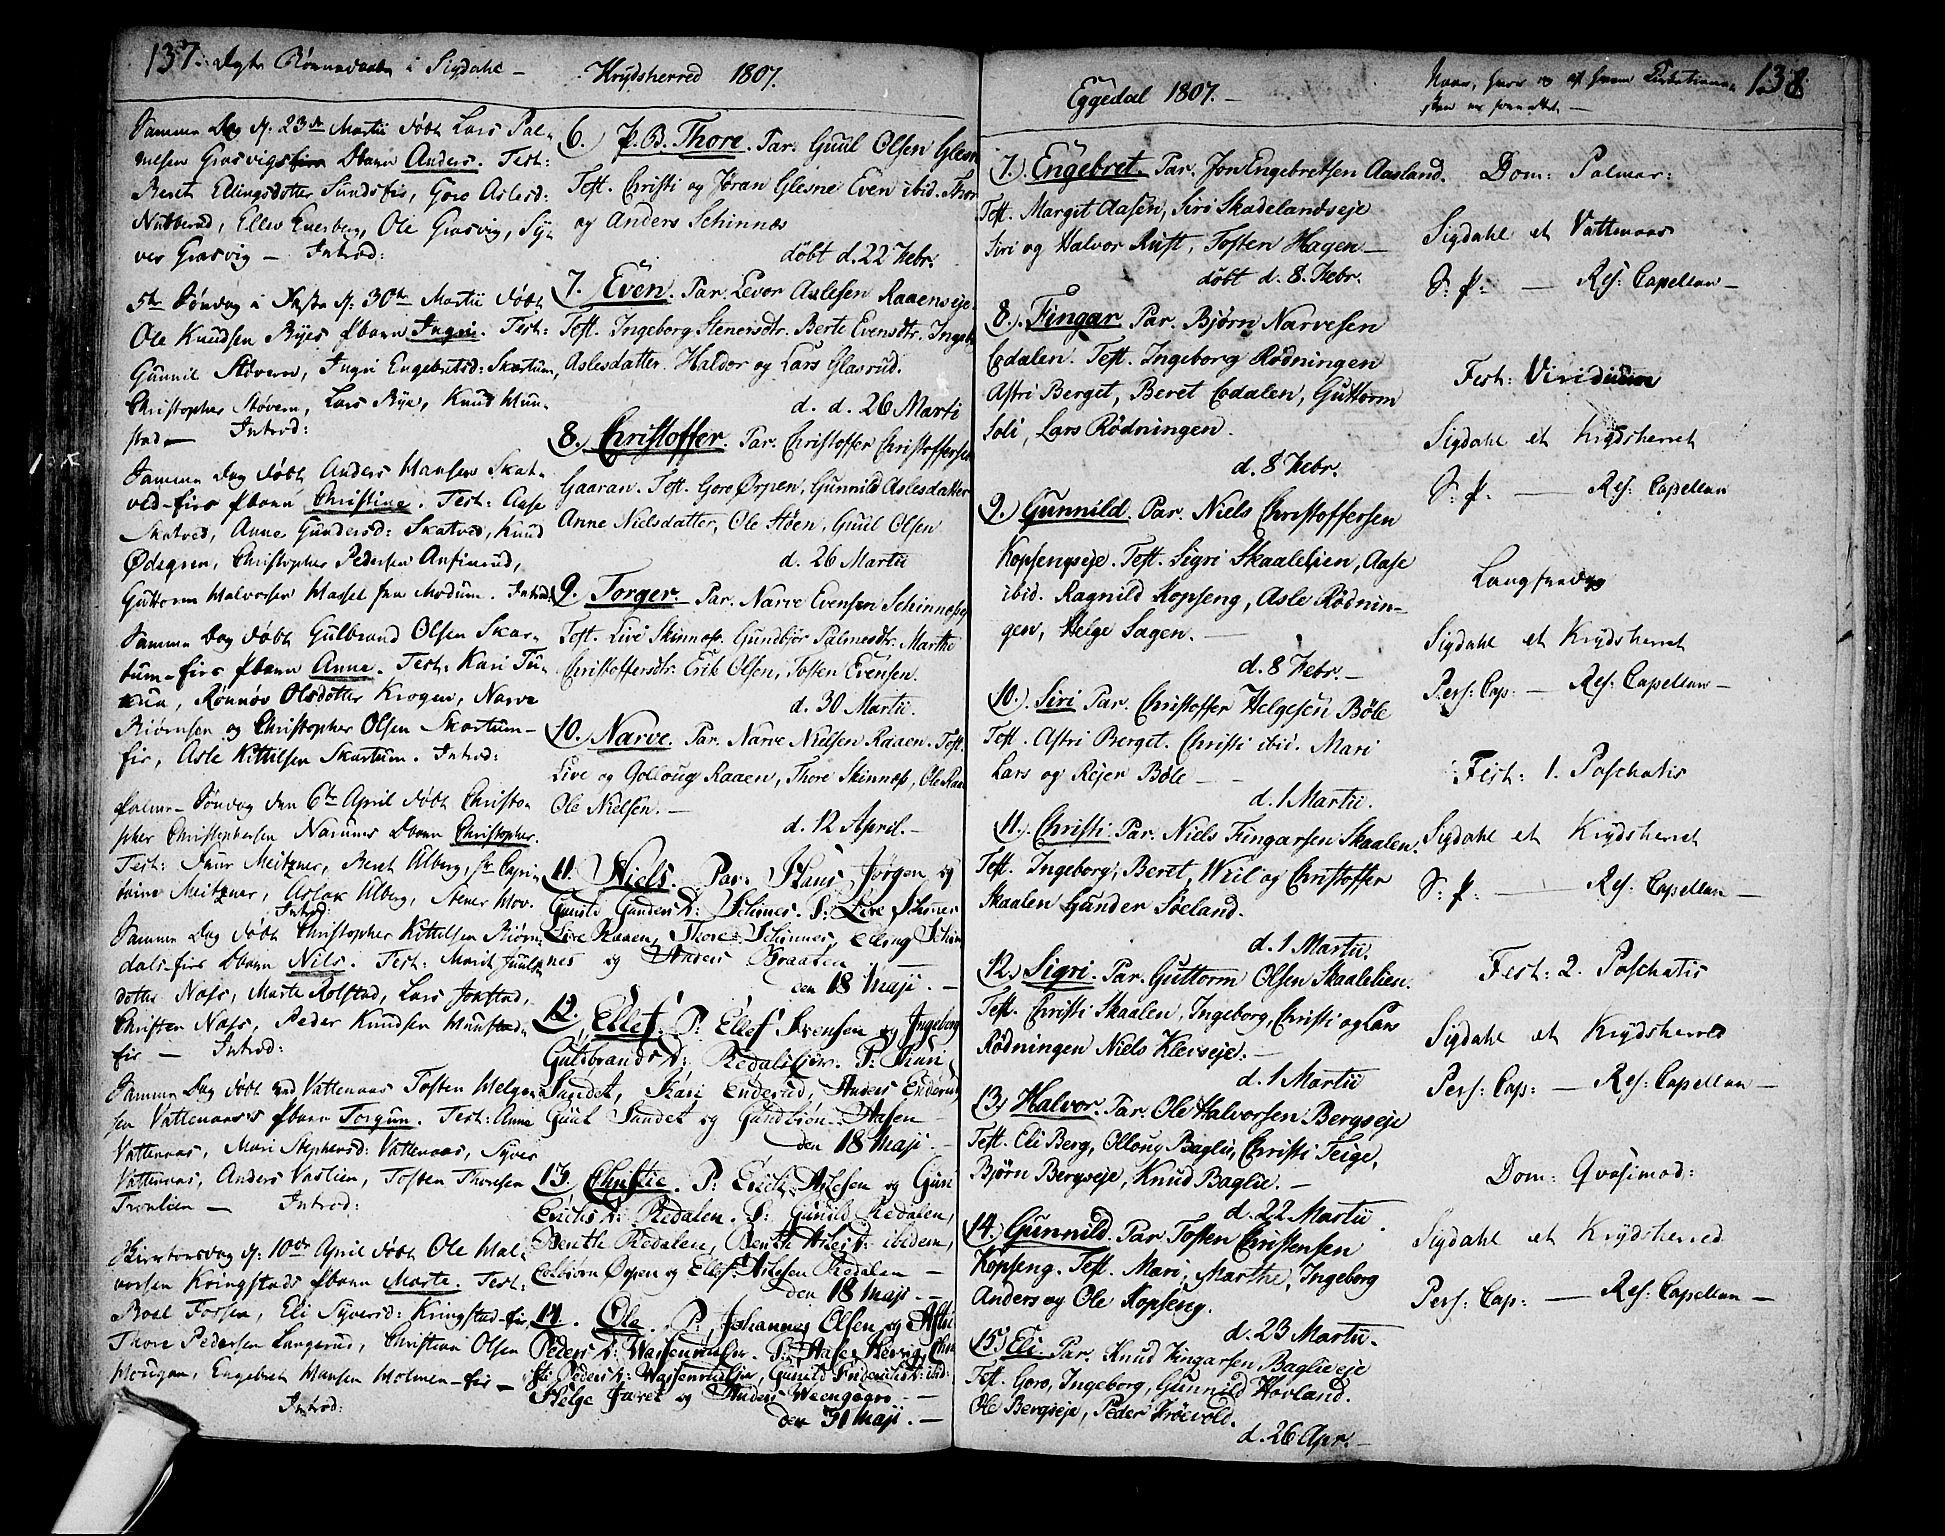 137. Døgte Rønnevaabn i Sigdahl —
Samme Dag d. 23de Martii døbt Lars Pal-
mesen Grasvigs Dbarn Anders. Test:
Beret Ellingsdotter Sundsfir, Goro Aslesd:
Nubberud, Ellev Enerberg, Ole Grasvig, Sy-
ver Grasvig — Introd:
5te Søndag i Faste d. 30te Martii døbt
Ole Knudsen Ryes Pbarn Ingri. Test:
Gunnil Støvern, Ingri Engebretsd: Skartum,
Christopher Støvern, Lars Rye, Knud Mun-
stad — Introd:
Samme Dag døbt Anders Hansen Skat-
ved-fir Pbarn Christine. Test: Aase
Skatved, Anne Gundersd: Skatved, Knud
Ødegren, Christopher Pedersen Anfinrud,
Guttorm Halvorsen Hassel fra Modum. Introd:
Samme Dag døbt Gulbrand Olsen Skar-
tum-firs Pbarn Anne. Test: Kari
Rønnøv Olsdotter Krogen, Narve
Biørnsen og Christopher Olsen Skartum-
fir, Asle Kittilsen Skartum. Introd:
Palme-Søndag den 6te April døbt Christo-
pher Christophersen Narums Dbarn Christopher.
Test: Meitzner, Beret Alberg, Hr Capi-
taine Meitzner, Aslak Alberg, Stener Mov.
Introd:
Samme Dag døbt Christopher Kittilsen Biørn-
dals-firs Dbarn Nils. Test: Marit Juuls-
dotter Nass, Marte Rolstad, Lars Jonstad,
Christen Nass, Peder Knudsen Munstad-
fir — Introd:
Samme Dag døbt ved Vattenaas Tosten Helge-
sen Vattenaas's Pbarn Torgun. Test: Anne
Vattenaas, Mari Stephensd: Vattenaas, Syver
Vattenas, Anders Vaslien, Tosten Thoresen
Tronlien — Introd:
Skiertorsdag d: 10de April døbt Ole Hal-
vorsen Kringstads Pbarn Marte. Test:
Boel Fossen, Eli Syversd: Kringstad-fir,
Thore Pedersen Langerud, Christian Olsen
Mougen, Engebret Hansen Holmen-fir —
Introd:
Krydsherred 1807.
6.) P. B. Thore. Par: Guul Olsen Glesn
Test. Christi og Jøran Glesne Even ibid. Thor
og Anders Schinnes
døbt d. 22 Febr.
7. Even. Par. Levor Aslesen Raaenseje.
Test. Ingeborg Stenersdtr. Berte Evensdtr. Ingeb.
Aslesdatter. Haldor og Lars Glasrud.
d. d. 26 Marti
8. Christoffer. Par. Christoffer Christoffersen
Gaaran. Test. Goro Ørpen, Gunnild Aslesdatter
Anne Nielsdatter, Ole Høen, Guul Olsen
d. 26 Martii
9. Torger. Par. Narve Evensen Schinness
Test. Live Skinness. Gundbjør Palmesdtr. Marthe
Christoffersdtr. Erik Olsen, Tosten Evensen.
d. 30 Martii.
10. Narve. Par. Narve Nielsen Raaen. Test.
Live og Golloug Raaen, Thore Skinness, Ole Raaen
Ole Nielsen. —
d. 12 April. —
11. Niels Par: Hans Jørgen og
Gunild Gunders D: Schines. T: Live Schines
Live Raaen, Thore Schinnes, Elling Schin
nes og Anders Braaten —
den 18 Maji. —
12. Ellef. P: Ellef Svensen og Ingeborg
Gulbrands D: Redalseier. T: Kari
Sandet, Kari Enderud, Anders Enderud,
Guul Sandet og Gundbiøn Aasen
den 18 Maji —
13. Christie. P: Erich Aslesen og Guri
Erichs D: Redalen. T: Gunild Redalen,
Benthe Redalen, Benthe Asles D: ibidem,
Colbiørn Ørpen og Ellef Aslesen Redalen —
den 18 Maji —
14. Ole. P: Johannes Olsen og Astri
Peders D: T: Aase Hervig, Chri
sti Peders D: Gunild Friderichs D: ibid:
Helge Juret og Anders Weengogro. —
den 31 Maji. —
Eggedal 1807. —
7.) Engebret. Par. Jon Engebretsen Aasland.
Test. Margit Aasen, Siri Skadelandseje
Siri og Halvor Rust, Tosten Hagen —
døbt d. 8. Febr.
8.) Fingar Par. Bjørn Narvesen
Eodalen. Test. Ingeborg Rødningen
Astri Berget, Beret Eodalen, Guttorm
Soli, Lars Rødningen.
d. 8 Febr.
9. Gunnild. Par. Niels Christoffersen
Kopsengseje. Test. Sigri Skaalelien, Aase
ibid. Ragnild Kopseng, Asle Rødnin-
gen, Helge Sagen. —
d. 8 Febr. —
10.) Siri Par. Christoffer Helgesen Bøle
Test. Astri Berget. Christi ibid. Mari
Lars og Rejer Bøle —
d. 1 Martii.
11.) Christi. Par. Niels Fingarsen Skaalen.
Test. Ingeborg, Beret, Wiil og Christoffer
Skaalen Gunder Søeland.
d. 1 Martii.
12.) Sigri. Par. Guttorm Olsen Skaalelien.
Test. Christi Skaalen, Ingeborg, Christi og Lars
Rødningen Niels Kleivseje. —
d. 1 Martii
13.) Halvor. Par. Ole Halvorsen Bergseje
Test. Eli Berg, Olloug Baglie, Christi Teige,
Bjørn Bergseje, Knud Baglie. —
d. 22 Martii.
14. Gunnild. Par Tosten Christensen
Kopseng. Test. Mari, Marthe, Ingeborg
Anders og Ole Kopseng.
d. 23 Martii. —
15.) Eli. Par. Knud Fingarsen Baglieeje
Test. Goro, Ingeborg, Gunnild Hovland.
Ole Bergseje, Peder Frøevold.
d. 26 Apr. —
Naar, hvor og af hvem Cathechisatio-
nen er forrettet. —
138.
Dom: Palmar:
Sigdahl et Vattenaas
S: P: — Res: Capellan —
Fest: Viridium
Sigdahl et Krydsherret
S: P: — Res: Capellan
Langfredag
Sigdahl et Krydsherret
Pers: Cap: — Res: Capellan —
Fest: 1. Paschatis
Sigdahl et Krydsherret
S: P: — Res: Capellan —
Fest: 2. Paschatis
Sigdahl et Krydsherred
Pers: Cap: — Res: Capellan —
Dom: Qvasimod:
Sigdahl et Krydsherred
Pers: Cap: — Res: Capellan —